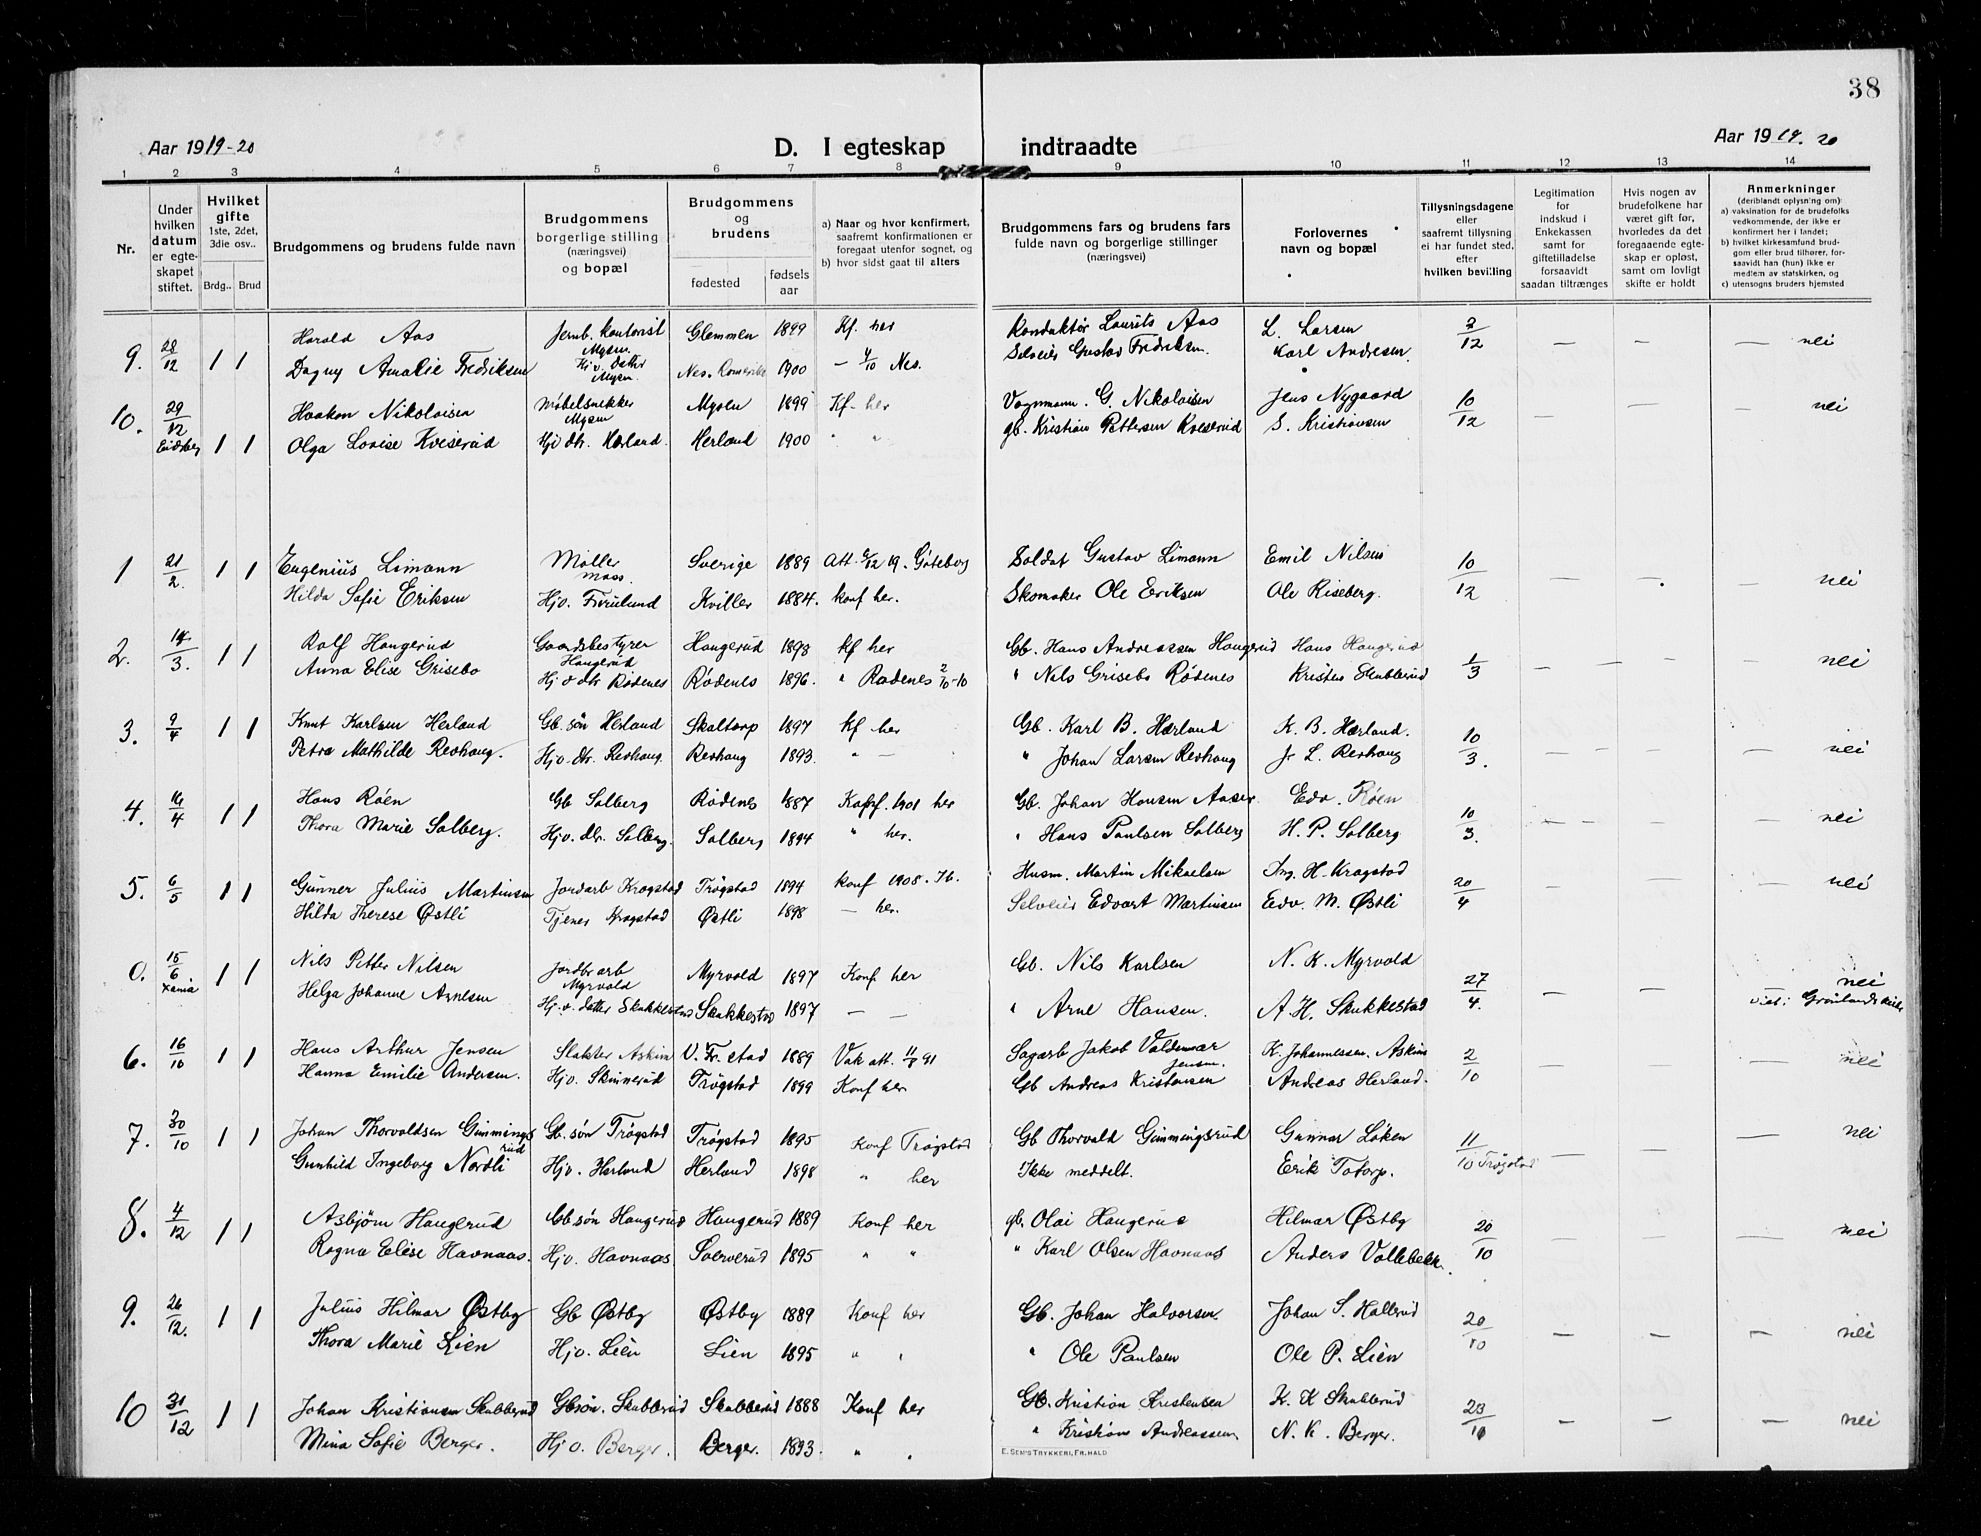 38
Aar 1919-20 D. I egteskap indtraadte Aar 1919. 20
1 2 3 4 5 6 7 8 9 10 11 12 13 14
Nr.
Under hvilken datum er egteskapet stiftet.
Hvilket gifte 1ste, 2det, 3die osv..
Brdg.. Brud
Brudgommens og brudens fulde navn
Brudgommens borgerlige stilling (næringsvei) og bopæl
Brudgommens og brudens
fødested fødsels aar
a) Naar og hvor konfirmert, saafremt konfirmationen er foregaat utenfor sognet, og
b) hvor sidst gaat til alters
Brudgommens fars og brudens fars fulde navn og borgerlige stillinger (næringsvei)
Forlovernes navn og bopæl
Tillysningsdagene eller saafremt tillysning ei har fundet sted, efter hvilken bevilling
Legitimation for indskud i Enkekassen samt for giftetilladelse forsaavidt saadan tiltrænges
Hvis nogen av brudefolkene har været gift før, hvorledes da det foregaaende egteskap er opløst, samt om lovligt skifte er holdt
Anmerkninger (deriblandt oplysning om)
a) vaksination for de brudefolks vedkommende, der ikke er konfirmert her i landet;
b) hvilket kirkesamfund brudgom eller brud tilhører, forsaavidt han (hun) ikke er medlem av statskirken, og
c) utensogns bruders hjemsted
9. 28/12 1 1 Harald Aas Jernb. kontorist Mysen Glemmen 1899 Kf. her Konduktør Laurits Aas L. Larsen 7/12 — — — nei
Dagny Amalie Fredriksen Hj. v. datter Mysen Nes. Romerike 1900 — 4/10 Nes. Selveier Gustav Fredriksen. Karl Andresen.
10. 29/12 Eidsberg 1 1 Haakon Nikolaisen Møbelsnekker Mysen Mysen 1899 Kf. her Vognmann. G. Nikolaisen Jens Nygaard 10/12 — — — nei
Olga Lovise Kveserud Hj. dtr. Herland. Herland 1900 " " gb. Kristian Pettersen Kveserud S. Kristiansen
1 21/2. 1 1 Eugenius Limann Møller Moss. Sverige 1889 Att. 6/12 19. Göteborg Soldat Gustav Limann Emil Nilsen 10/12 — — — nei
Hilda Sofie Eriksen Hj. v. Furulund Kviller 1884. konf her. Skomaker Ole Eriksen Ole Riseberg.
2. 14/3. 1 1 Rolf Haugerud Gaardsbestyrer Haugerud Haugerud 1893 Kf her Gb. Hans Andreassen Haugerud Hans Haugerud 1/3 — — — nei
Anna Elise Grisebo Hj v dtr Rødenes Rødenes 1896. " Rødenes 2/10-10 " Nils Grisebo Rødenes Kristen Skubberud
3. 9/4 1 1 Knut Karlsen Herland Gb. søn Herland Skaltorp 1897 Kf her Gb. Karl B. Hærland K. B. Hærland. 10/3. — — — nei
Petra Mathilde Revhaug. Hj. v. dtr. Revhaug. Revhaug 1893. " — " Johan Larsen Revhaug J. L. Revhaug
4. 14/4 1 1 Hans Røen Gb Solberg Rødenes 1887 Konf. 1901 her Gb. Johan Hansen Aaser Edv. Røen 10/3. — — — nei
Thora Marie Solberg. Hj. v. dtr. Solberg. Solberg 1894 " her. " Hans Paulsen Solberg H. P. Solberg
5. 6/5 1 1 Gunner Julius Martinsen Jordarb Kragstad Trøgstad 1894 konf 1908. Husm. Martin Mikaelsen Ing. H. Kragstad 20/4 — — — nei
Hilda Therese Østli Tjener Kragstad Østli 1898 — her. Selveier Edvart Martinsen Edv. M. Østli
0. 15/6 Xania 1 1 Nils Petter Nilsen Jordbrarb Myrvold Myrvold 1897 Konf her Gb. Nils Karlsen N. K. Myrvold 27/4. — — — nei
Helga Johanne Arnesen Hj. v. datter Skukkestad Skukkestad 1897 — — " Arne Hansen. A. H. Skukkestad viet i Grønlands kirke
6. 16/10 1 1 Hans Arthur Jensen Slakter Askim V. Fr. stad 1889 Vak att. 11/8 91 Sagarb Jakob Valdemar Jensen K. Johannesen. Askim 2/10 — — — nei
Hanna Emilie Andersen. Hj v. Skinnerud Trøgstad 1899 Konf her Gb Andreas Kristiansen Andreas Herland.
7. 30/10 1 1 Johan Thorvaldsen Gimmingsrud Gb. søn Trøgstad Trøgstad 1895 Konf Trøgstad Gb Thorvald Gimmingsrud Gunnar Løken 11/10 Trøgstad — — — nei
Gunhild Ingeborg Nordli Hj v. Herland Herland 1898 " her Ikke meddelt. Erik Totorp.
8. 4/12 1 1 Asbjørn Haugerud Gb søn Haugerud Haugerud 1889 Konf her gb. Olai Haugerud Hilmar Østby 20/10 — — — nei
Ragna Elise Havnaas. Hj v. Havnaas Sørverud 1895 " " " Karl Olsen Havnaas Anders Vollebekk.
9. 26/12. 1 1 Julius Hilmar Østby Gb Østby Østby 1889 Konf her Gb. Johan Halvorsen. Johan S. Hallerud 20/10 — — — nei
Thora Marie Lien Hj v. Lien Lien 1895 " " " Ole Paulsen Ole P. Lien
10 31/12 1 1 Johan Kristiansen Skubberud Gbsøn. Skubberud Skubberud 1888 Konf her Gb. Kristian Kristensen K. K Skubberud 23/10 — — — nei
Mina Sofie Berger. Hj v. Berger. Berger. 1893. " " " Kristian Andreassen. N. K. Berger.
E. SEM'S TRYKKERI, FR.HALD